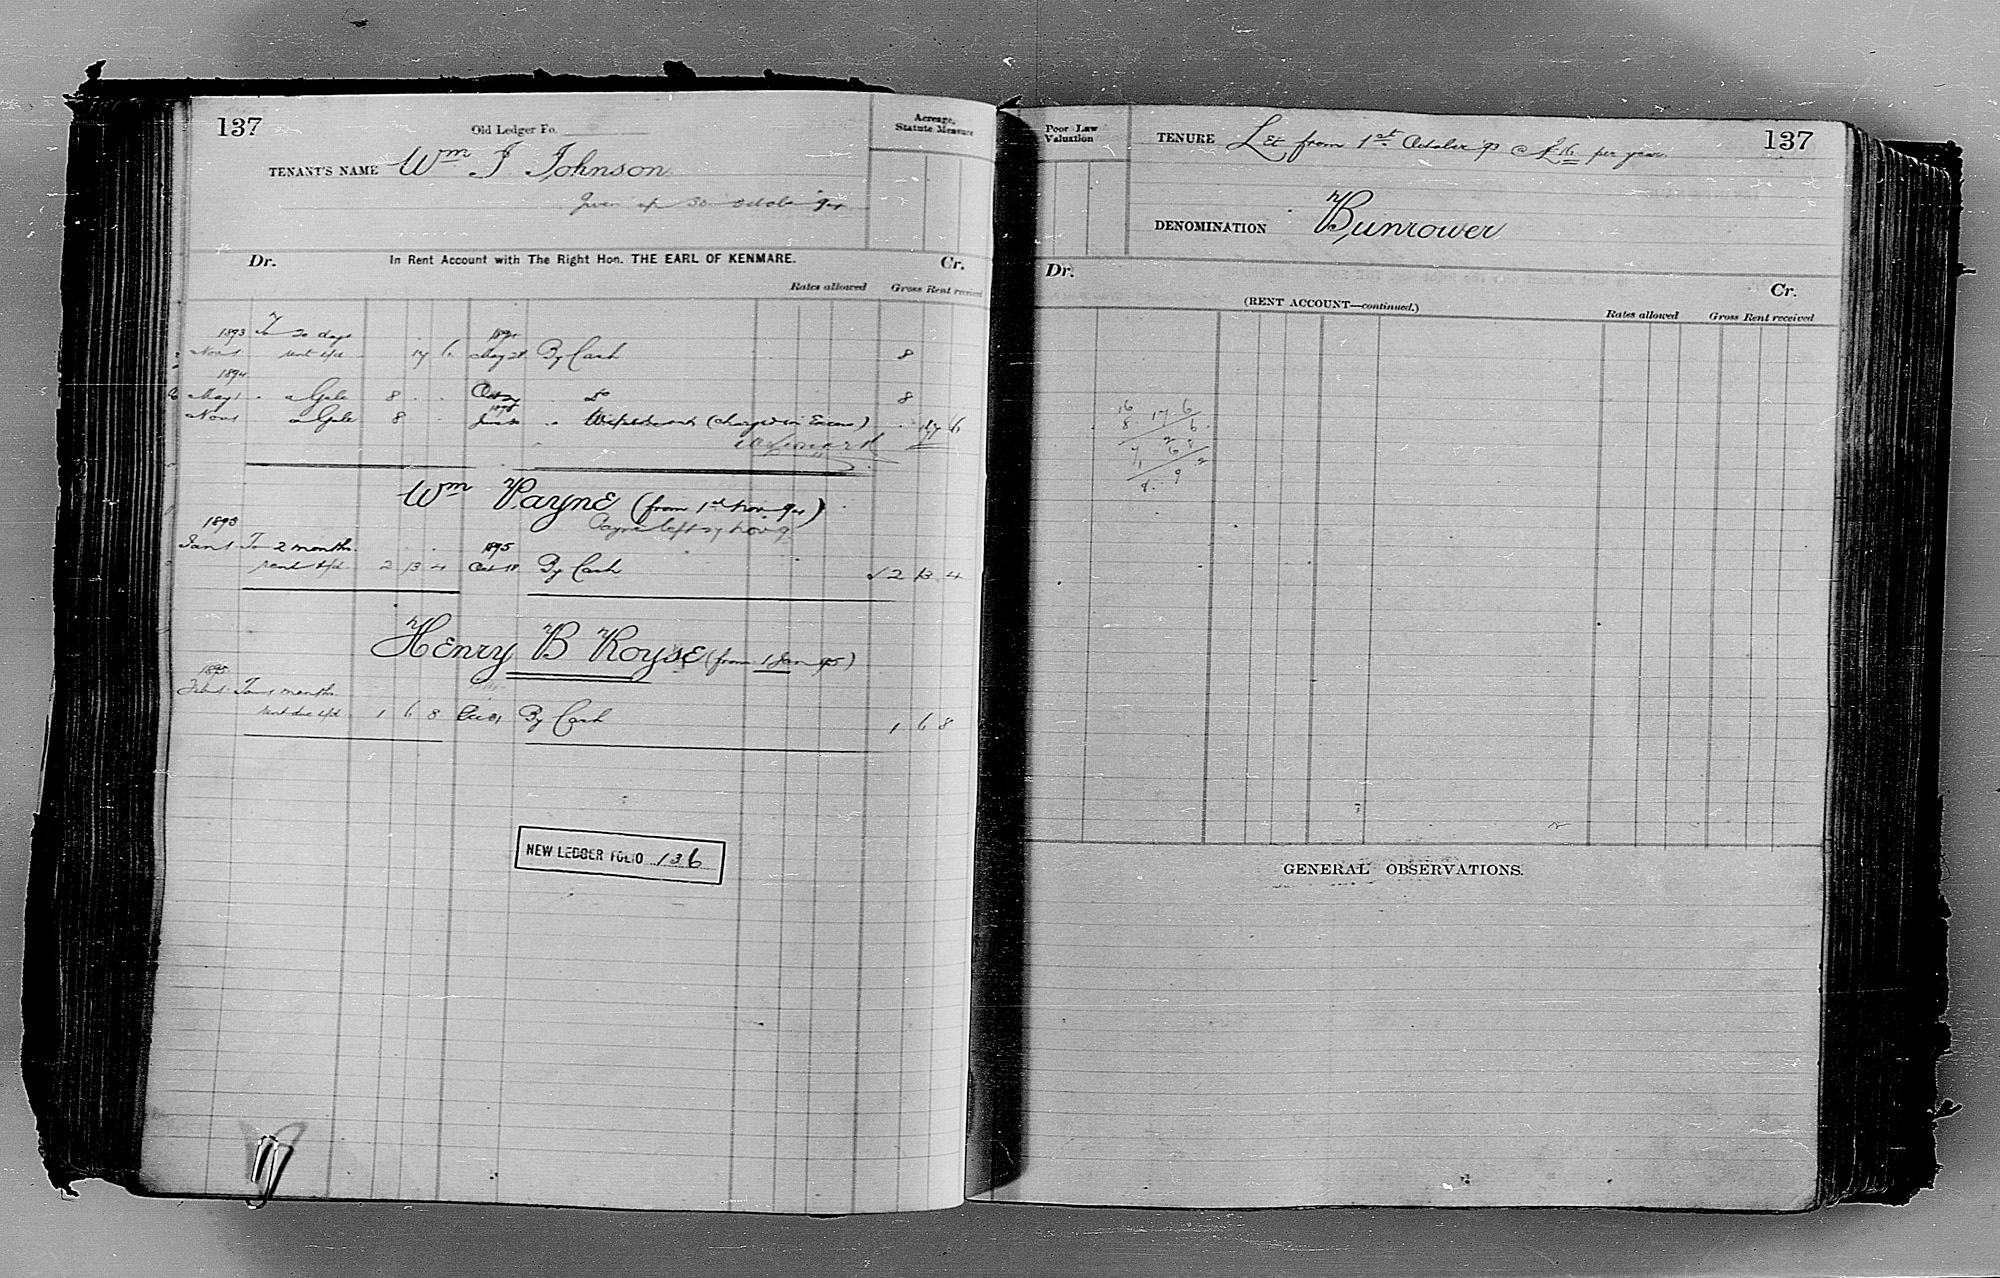 137
Old Ledger Fo.
Acreage, Statute Measure
TENANT'S NAME Wm J Johnson
Given up 30 October 94
Dr. In Rent Account with The Right Hon. THE EARL OF KENMARE. Cr.
Rates allowed Gross Rent received
1893 To 20 days 1894
Nov 1 rent 17 6 May 28 By Cash 8
1894
May 1 " a Gale 8 . . Oct " Do 8
Nov 1 a Gale 8 . . 1895 June " (charged in Excess) 17 6
Wm Payne (from 1st Nov. 94)
Payne left 27 Nov 9
1893 1895
Jan 1 To 2 months
rent 2 13 4 Oct 18 By Cash 2 13 4
Henry B Royse (from 1 Jan 95)
1895
Feb 1 To 1 months
rent due 1 6 8 Dec 31 By Cash 1 6 8
NEW LEDGER FOLIO 136
Poor Law Valuation
TENURE Let from 1st October 93 @ £16 per year
137
DENOMINATION Bunrower
Dr. Cr.
(RENT ACCOUNT—continued.)
Rates allowed Gross Rent received
16 17 6
8 6
GENERAL OBSERVATIONS.